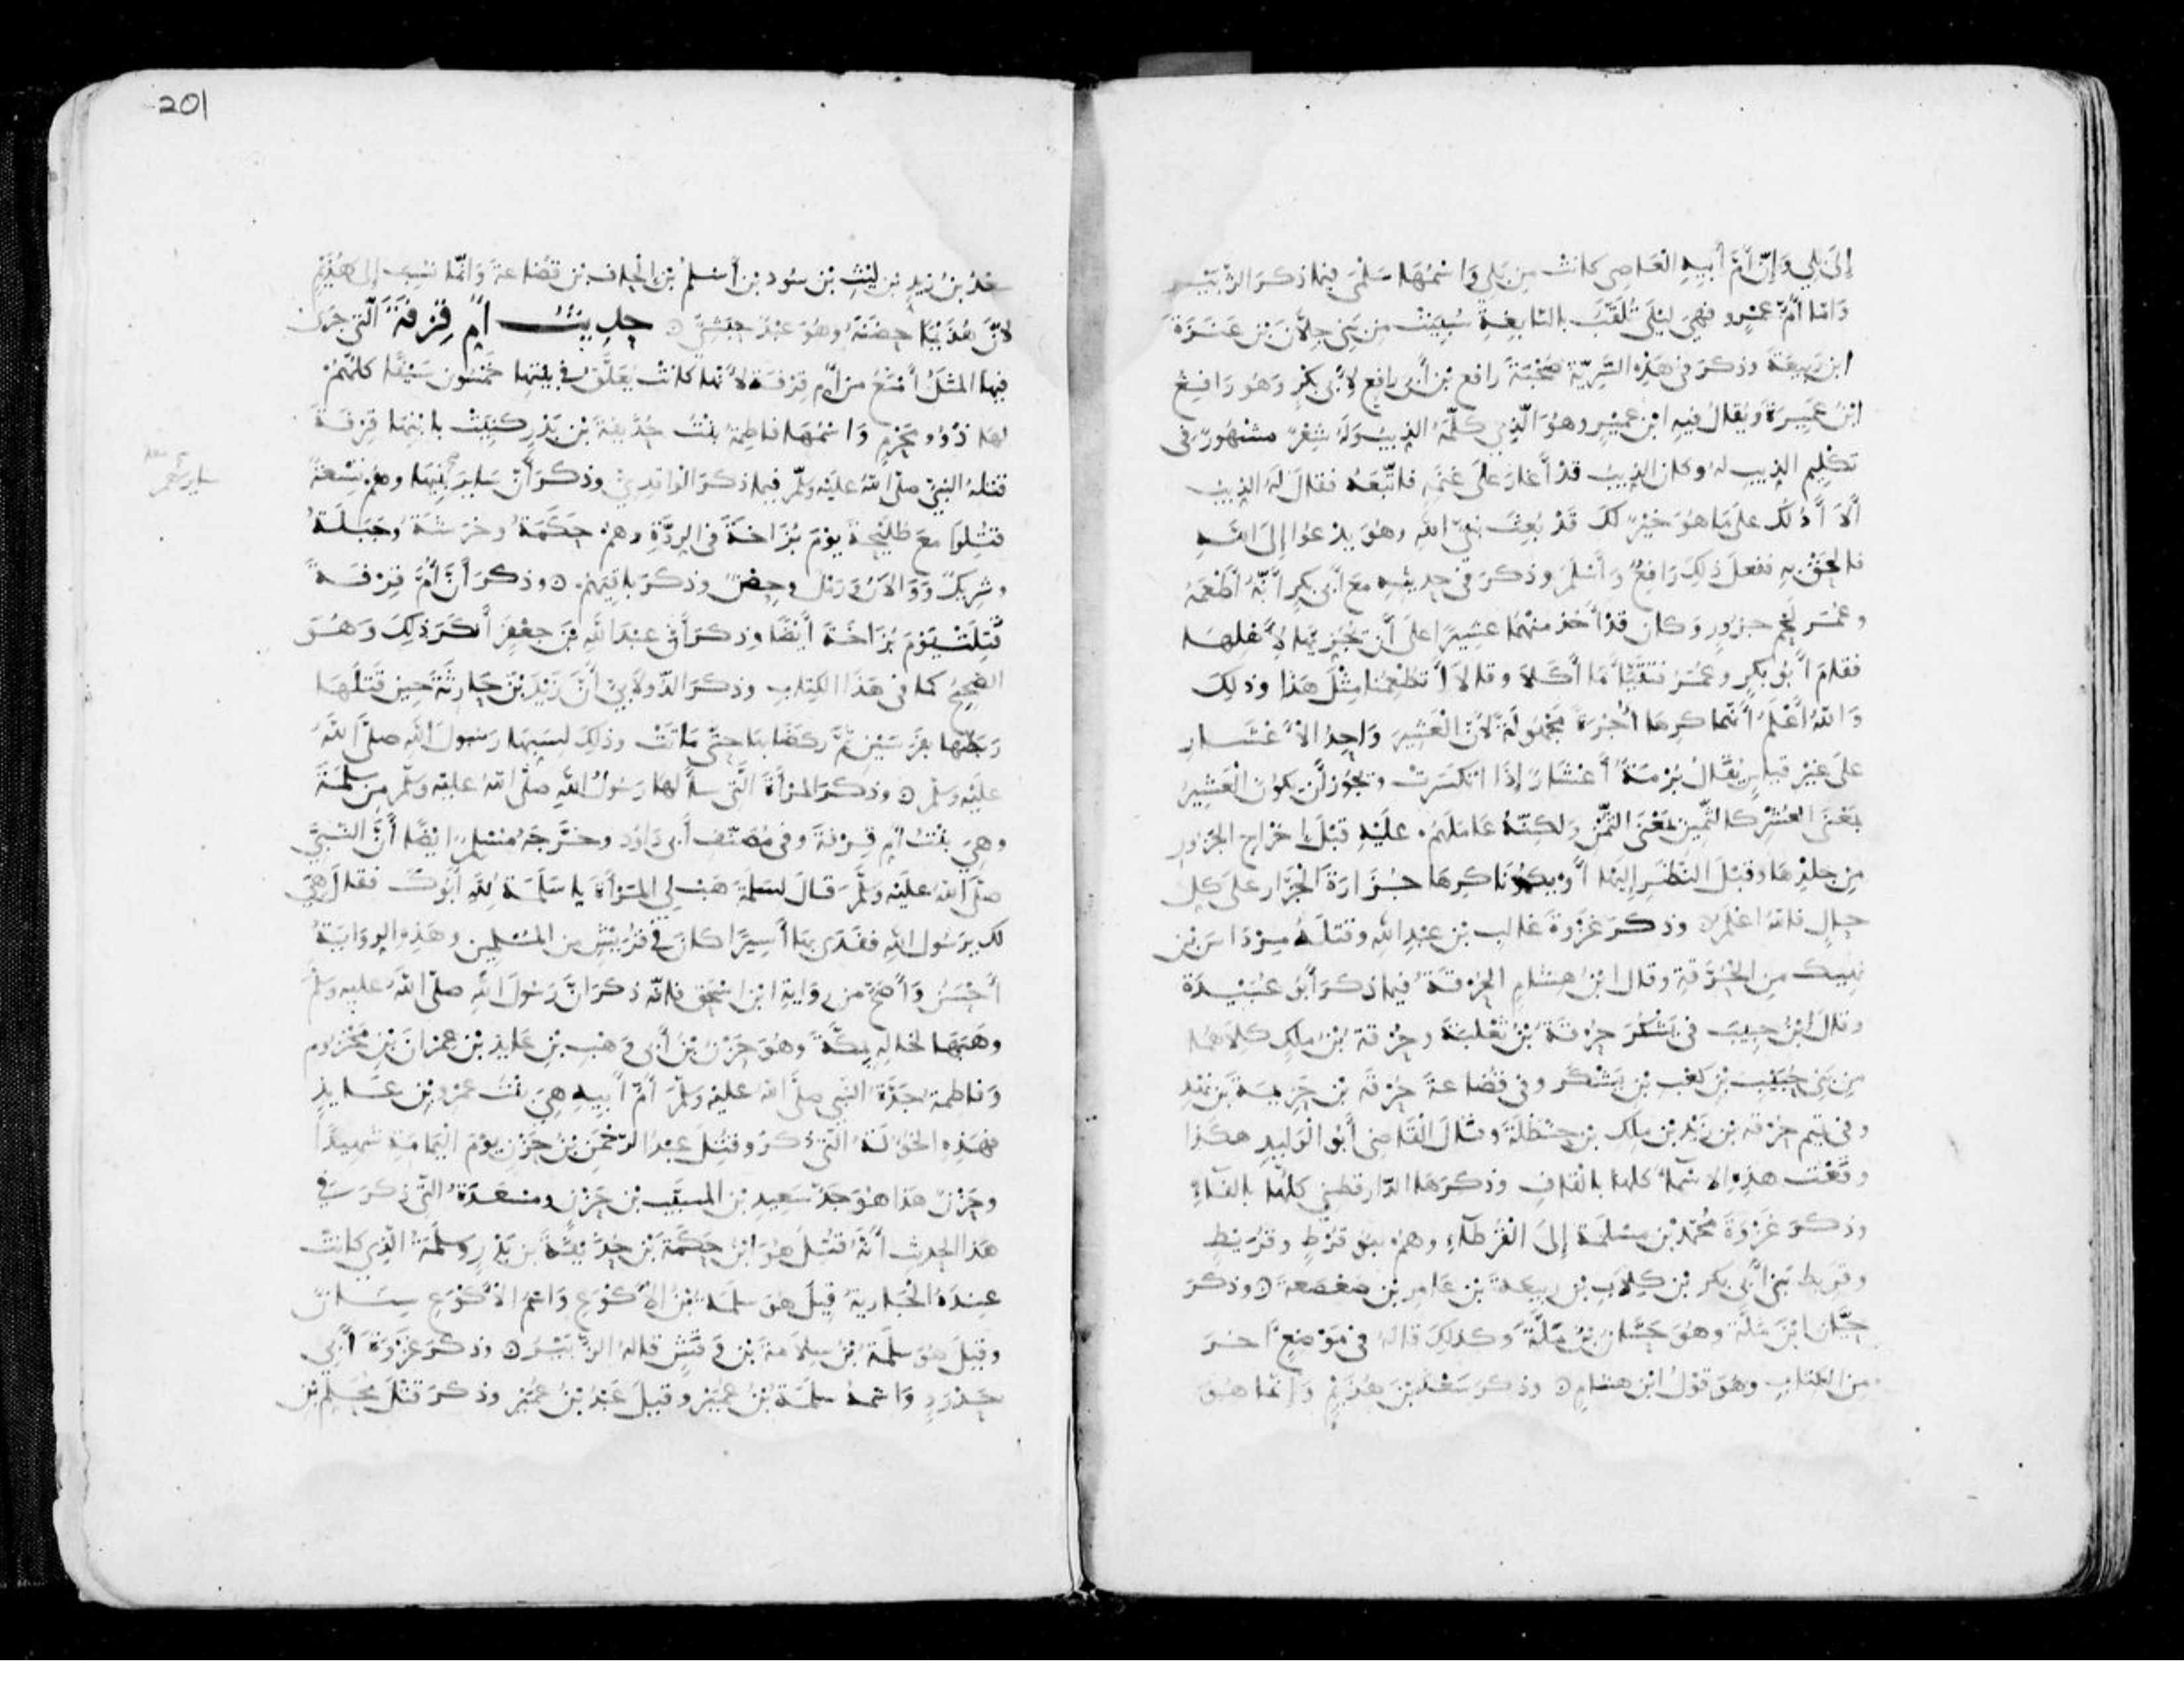 إلى بلي وإن أم أبيه العاصي كانت من بلي واسمها سلمى فيما ذكر الزبير
وأما أم عمرو فهي ليلى تلقب بالنابغة سبيت من بني جلان بن عنزة
ابن ربيعة وذكر في هذه السرية صحبة رافع بن أبي رافع لأبي بكر وهو رافع
ابن عميرة ويقال فيه ابن عمير وهو الذي كلمه الذيب وله شعر مشهور في
تكليم الذيب له وكان الذيب قد أغار على غنمه فاتبعه فقال له الذيب
ألا أدلك على ما هو خير لك قد بعث نبي الله وهو يدعوا إلى الله
فالحق به ففعل ذلك رافع وأسلم وذكر في حديثه مع أبي بكر أنه أطعمه
وعمر لحم جزور وكان قد أخذ منهما عشيرا على أن يجزيها لأهلها
فقام أبو بكر وعمر فتقيأ ما أكلا وقالا أتطعمنا مثل هذا وذلك
والله أعلم أنهما كرها أجرة مجهولة لأن العشير واحد الأعشار
على غير قياس يقال برمة أعشار إذا انكسرت ويجوز أن يكون العشير
بمعنى العشر كالثمين بمعنى الثمن ولكنه عاملهم عليه قبل إخراج الجزور
من جلدها وقبل النظر إليها أو يكونا كرها جزارة الجزار على كل
حال فالله اعلم وذكر غزوة غالب بن عبد الله وقتله مرداس بن
نهيك من الحرقة وقال ابن هشام الحرقة فيما ذكر أبو عبيدة
وقال ابن حبيب في يشكر حرقة بن ثعلبة وحرقة بن ملك كلاهما
من بني حبيب بن كعب بن يشكر وفي قضاعة حرقة بن خزيمة بن نهد
وفي تيم حرقة بن زيد بن ملك بن حنظلة وقال القاضي أبو الوليد هكذا
وقعت هذه الاسماء كلها بالقاف وذكرها الدارقطني كلها بالفاء
وذكر غزوة محمد بن مسلمة إلى القرطاء وهم بنو قرط وقريط
وقريط بني أبي بكر بن كلاب بن ربيعة بن عامر بن صعصعة ⊙ وذكر
حيان ابن ملة وهو حسان بن ملة وكذلك قاله في موضع اخر
من الكتاب وهو قول ابن هشام ⊙ وذكر سعد بن هذيم وإنما هو
201
سعد بن زيد بن ليث بن سود بن أسلم بن الحاف بن قضاعة وانما نسب إلى هذيم
لأن هذيما حضنه وهو عبد حبشي ⊙ حديث أم قرفة التي جرى
فيها المثل أمنع من أم قرفة لأنها كانت يعلق في بيتها خمسون سيفا كلهم
لها ذو محرم واسمها فاطمة بنت حذيفة بن بدر كنيت بابنها قرفة
قتله النبي صلى الله عليه وسلم فيما ذكر الواقدي وذكر أن ساير بنيها وهم تسعة
قتلوا مع طليحة يوم بزاخة في الردة وهم حكمة وخرشة وجبلة
وشريك ووالان ورمل وحصن وذكر باقيهم ⊙ وذكر أن أم قرفة
قتلت يوم بزاخة أيضا وذكر أن عبد الله بن جعفر أنكر ذلك وهو
الصحيح كما في هذا الكتاب وذكر الدولابي أن زيد بن حارثة حين قتلها
ربطها بفرسين ثم ركضا بها حتى ماتت وذلك لسبها رسول الله صلى الله
عليه وسلم ⊙ وذكر المرأة التي سألها رسول الله صلى الله عليه وسلم من سلمة
وهي بنت أم قرفة وفي مصنف أبي داود وخرجه مسلم ايضا أن النبي
صلى الله عليه وسلم قال لسلمة هب لي المرأة يا سلمة لله أبوك فقال هي
لك يرسول الله ففدى بها أسيرا كان في قريش من المسلمين وهذه الرواية
أحسن وأصح من رواية ابن اسحق فانه ذكر ان رسول الله صلى الله عليه وسلم
وهبها لخاله بمكة وهو حزن بن أبي وهب بن عايذ بن عمران بن مخزوم
وفاطمة جدة النبي صلى الله عليه وسلم أم أبيه هي بنت عمرو بن عايذ
فهذه الخؤلة التي ذكر وقتل عبد الرحمن بن حزن يوم اليمامة شهيدا
وحزن هذا هو جد سعيد بن المسيب بن حزن ومسعدة التي ذكر في
هذا الحديث أنه قتل هو ابن حكمة بن حذيفة بن بدر وسلمة الذي كانت
عنده الجارية قيل هو سلمة بن الأكوع واسم الأكوع سنان
وقيل هو سلمة بن سلامة بن وقش قاله الزبير ⊙ وذكر غزوة أبي
حدرد واسمه سلمة بن عمير وقيل عبد بن عمير وذكر قتل محلم بن